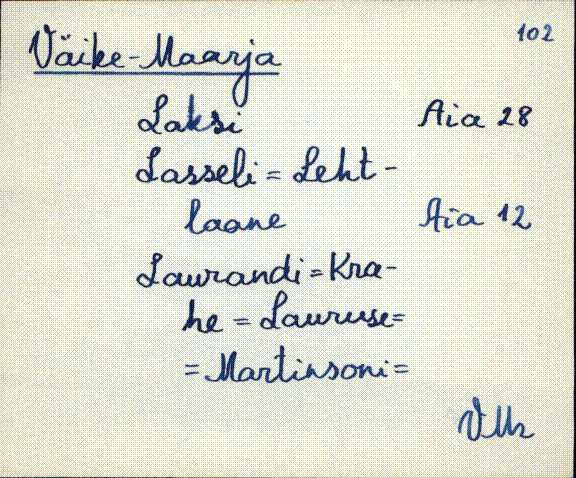 102
Väike-Maarja
Laksi Aia 28
Lasseli = Leht-
laane Aia 12
Laurandi = Kra-
he = Lauruse =
= Martinsoni =